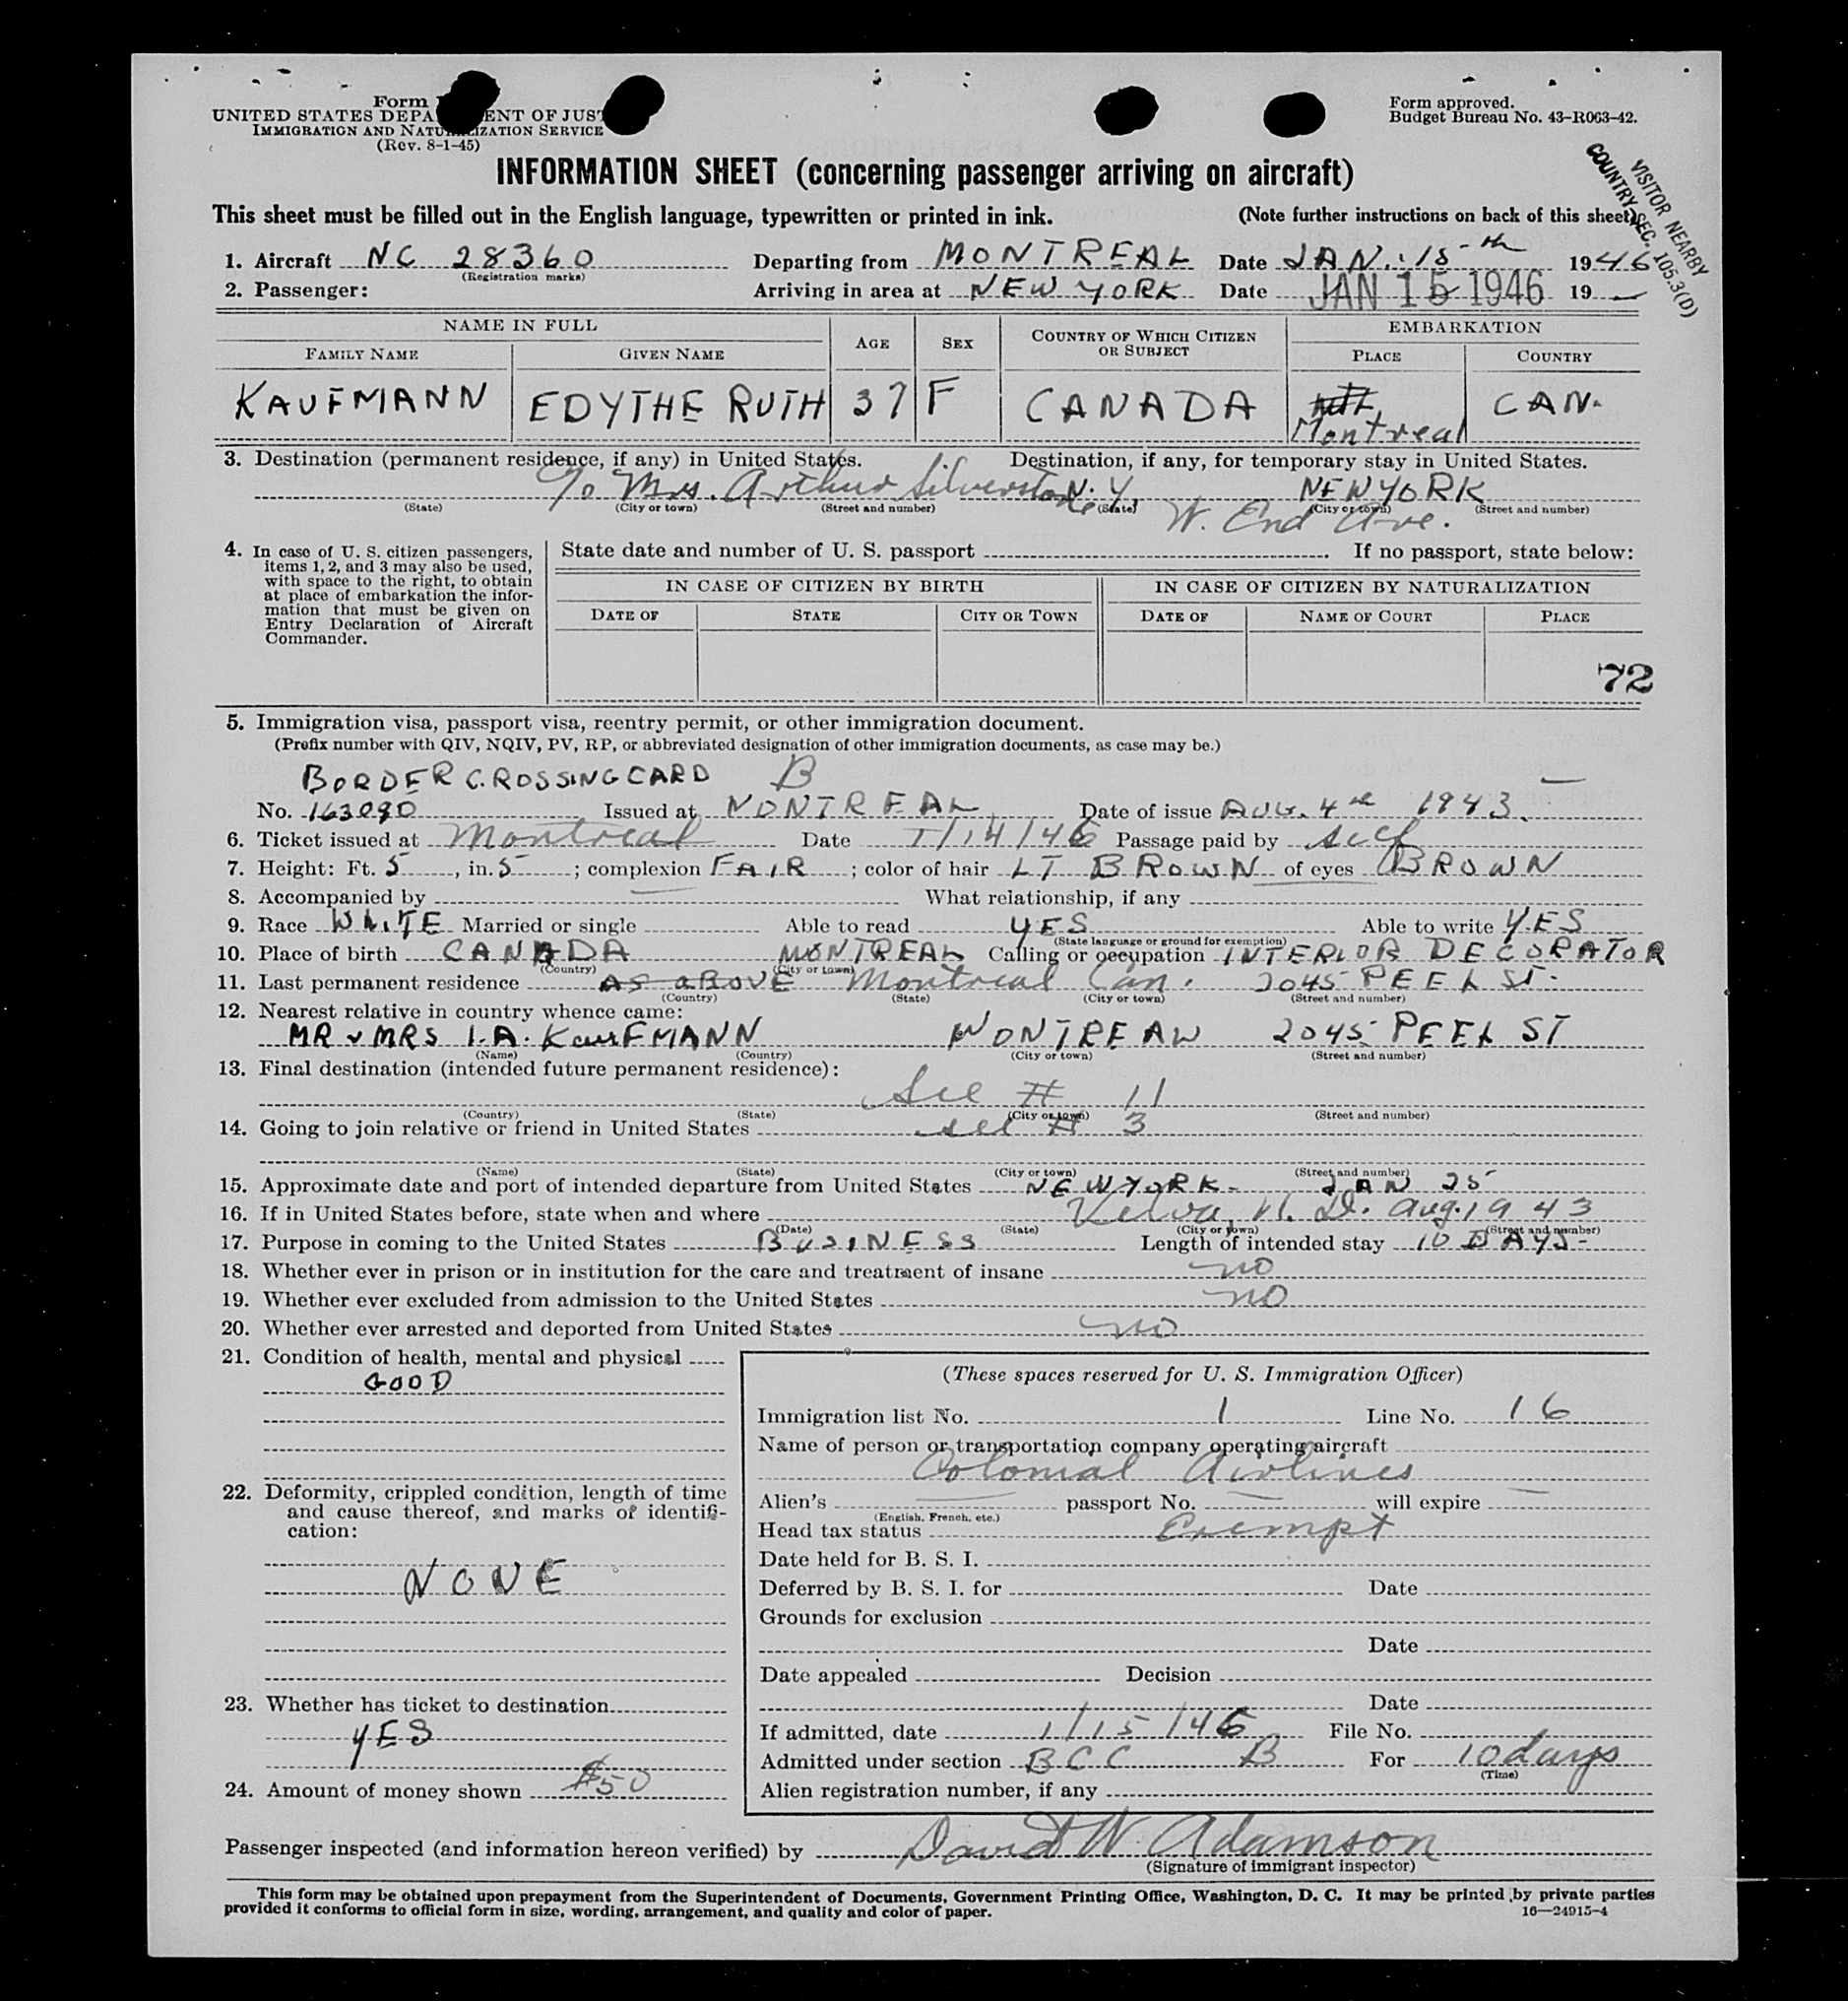 Form
UNITED STATES DEPA ENT OF JUST
IMMIGRATION AND NATU IZATION SERVICE
(Rev. 8-1-45)
Form approved.
Budget Bureau No. 43-R063-42.
INFORMATION SHEET (concerning passenger arriving on aircraft)
VISITOR NEARBY
COUNTRY SEC. 105.3(D)
This sheet must be filled out in the English language, typewritten or printed in ink. (Note further instructions on back of this sheet)
1. Aircraft NC 28360 Departing from MONTREAL Date JAN. 15-th 1946
(Registration marks)
2. Passenger: Arriving in area at NEW YORK Date JAN 15 1946 19
NAME IN FULL AGE SEX COUNTRY OF WHICH CITIZEN OR SUBJECT EMBARKATION
FAMILY NAME GIVEN NAME PLACE COUNTRY
KAUFMANN EDYTHE RUTH 37 F CANADA Montreal CAN.
3. Destination (permanent residence, if any) in United States. Destination, if any, for temporary stay in United States.
c/o Mrs. Arthur Silverstone N.Y. NEW YORK
(State) (City or town) (Street and number) (State) (City or town) (Street and number)
W. End Ave.
4. In case of U. S. citizen passengers,
items 1, 2, and 3 may also be used,
with space to the right, to obtain
at place of embarkation the infor-
mation that must be given on
Entry Declaration of Aircraft
Commander.
State date and number of U. S. passport . If no passport, state below:
IN CASE OF CITIZEN BY BIRTH IN CASE OF CITIZEN BY NATURALIZATION
DATE OF STATE CITY OR TOWN DATE OF NAME OF COURT PLACE
72
5. Immigration visa, passport visa, reentry permit, or other immigration document.
(Prefix number with QIV, NQIV, PV, RP, or abbreviated designation of other immigration documents, as case may be.)
BORDER CROSSING CARD B
No. 163090 Issued at MONTREAL Date of issue AUG. 4th 1943.
6. Ticket issued at Montreal Date 1/14/46 Passage paid by self
7. Height: Ft. 5, in. 5; complexion FAIR; color of hair LT BROWN of eyes BROWN
8. Accompanied by What relationship, if any
9. Race WHITE Married or single Able to read YES Able to write YES
(State language or ground for exemption)
10. Place of birth CANADA MONTREAL Calling or occupation INTERIOR DECORATOR
(Country) (City or town)
11. Last permanent residence AS ABOVE Montreal Can. 2045 PEEL ST.
(Country) (State) (City or town) (Street and number)
12. Nearest relative in country whence came:
MR & MRS I. A. KauFMANN MONTREAL 2045 PEEL ST
(Name) (Country) (City or town) (Street and number)
13. Final destination (intended future permanent residence):
See # 11
(Country) (State) (City or town) (Street and number)
14. Going to join relative or friend in United States see # 3
(Name) (State) (City or town) (Street and number)
15. Approximate date and port of intended departure from United States NEW YORK- JAN 25
16. If in United States before, state when and where Aug. 1943
(Date) (State) (City or town) (Street and number)
17. Purpose in coming to the United States BUSINESS Length of intended stay 10 DAYS-
18. Whether ever in prison or in institution for the care and treatment of insane no
19. Whether ever excluded from admission to the United States no
20. Whether ever arrested and deported from United States no
21. Condition of health, mental and physical
GOOD
22. Deformity, crippled condition, length of time
and cause thereof, and marks of identifi-
cation:
NONE
23. Whether has ticket to destination
YES
24. Amount of money shown $50
(These spaces reserved for U. S. Immigration Officer)
Immigration list No. 1 Line No. 16
Name of person or transportation company operating aircraft
Colonial Airlines
Alien's passport No. will expire
(English, French, etc.)
Head tax status Exempt
Date held for B. S. I.
Deferred by B. S. I. for Date
Grounds for exclusion
Date
Date appealed Decision
Date
If admitted, date 1/15/46 File No.
Admitted under section BCC B For 10 days
(Time)
Alien registration number, if any
Passenger inspected (and information hereon verified) by David W. Adamson
(Signature of immigrant inspector)
This form may be obtained upon prepayment from the Superintendent of Documents, Government Printing Office, Washington, D. C. It may be printed by private parties
provided it conforms to official form in size, wording, arrangement, and quality and color of paper. 16—24915-4